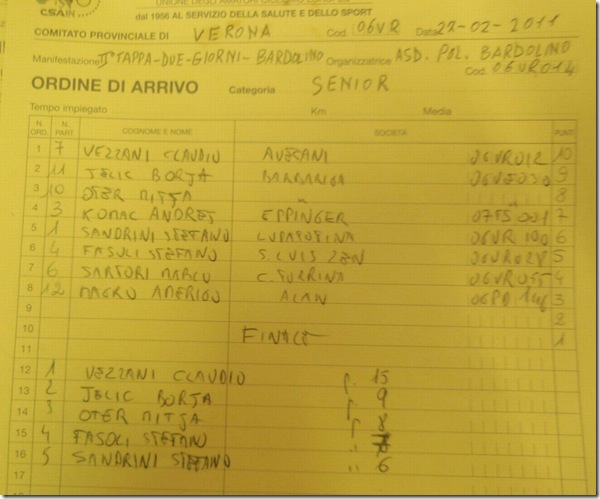 CSAIN
dal 1956 AL SERVIZIO DELLA SALUTE E DELLO SPORT
COMITATO PROVINCIALE DI VERONA Cod. 06VR Data 27-02-2011
Manifestazione IIª TAPPA-DUE-GIORNI-BARDOLINO Organizzatrice ASD. POL. BARDOLINO
Cod. 06VR014
ORDINE DI ARRIVO Categoria SENIOR
Tempo impiegato Km Media
N. ORD. N. PART. COGNOME E NOME SOCIETÀ PUNTI
1 7 VEZZANI CLAUDIO AVESANI 06VR012 10
2 11 JELIC BORJA BARBARIGA 9
3 10 OTER MITJA " " 8
4 3 KOMAC ANDREJ EPPINGER 07TS001 7
5 1 SANDRINI STEFANO LUPATOTINA 06VR100 6
6 4 FASOLI STEFANO S. LUIS ZEN 06VR028 5
7 6 SARTORI MARCO 06VR055 4
8 12 MAGRO AMERIGO ALAN 3
9 2
10 FINALE 1
11
12 1 VEZZANI CLAUDIO p. 15
13 2 JELIC BORJA p 9
14 3 OTER MITJA p 8
15 4 FASOLI STEFANO
16 5 SANDRINI STEFANO " 6
17